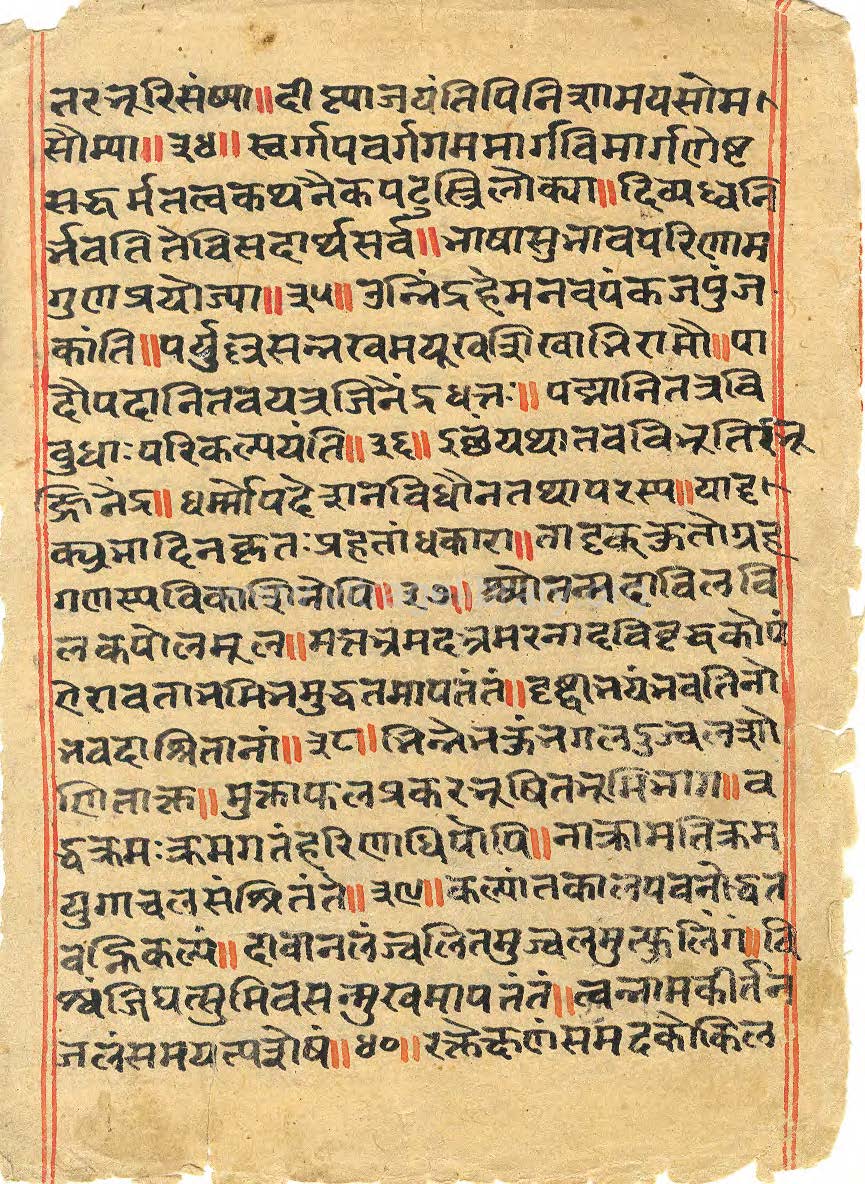 तरभूरिसंष्या॥दीप्त्याजयंतिपिनिशामयसोम
सौम्या॥३४॥स्वर्गापवर्गगममार्गविमार्गणेष्ट
सद्धर्मतत्वकथनैकपटुस्त्रिलोक्या॥दिव्यध्वनि
र्भवतितेविसदार्थसर्व॥भाषासुभावपरिणाम
गुणप्रयोज्या॥३५॥उन्निंद्रहेमनवपंकजपुंज
कांति॥पर्युल्लसन्नखमयूखशिखाभिरामौ॥पा
दौपदानितवयत्रजिनेंद्रधत्तः॥पद्मानितत्रवि
बुधाःपरिकल्पयंति॥३६॥इच्छंयथातवविभूतिरभू
ज्जिनेंद्र॥धर्म्मोपदेशनविधौनतथापरस्य॥यादृ
क्प्रभादिनकृतःप्रहतांधकारा॥तादृक्कुतोग्रह
गणस्यविकाशिनोपि॥३७॥श्च्योतन्मदाविलवि
लकपोलमूल॥मत्तभ्रमद्भ्रमरनादविवृद्धकोपं
ऐरावताभमिभमुद्धतमापतंतं॥दृष्ट्वाभयंभवतिनो
भवदाश्रितानां॥३८॥भिन्नेभकुंभगलदुज्वलशो
णिताक्त॥मुक्ताफलप्रकरभूषितभूमिभाग॥ब
द्धक्रमःक्रमगतंहरिणाधिपोपि॥नाक्रामतिक्रम
युगाचलसंश्रितंते॥३९॥कल्पांतकालपवनोद्धत
वह्निकल्पं॥दावानलंज्वलितमुज्वलमुत्फुलिंगं॥वि
श्वंजिघत्सुमिवसन्मुखमापतंतं॥त्वन्नामकीर्तन
जलंसमयत्यशेषं॥४०॥रक्तेक्षणंसमदकोकिल